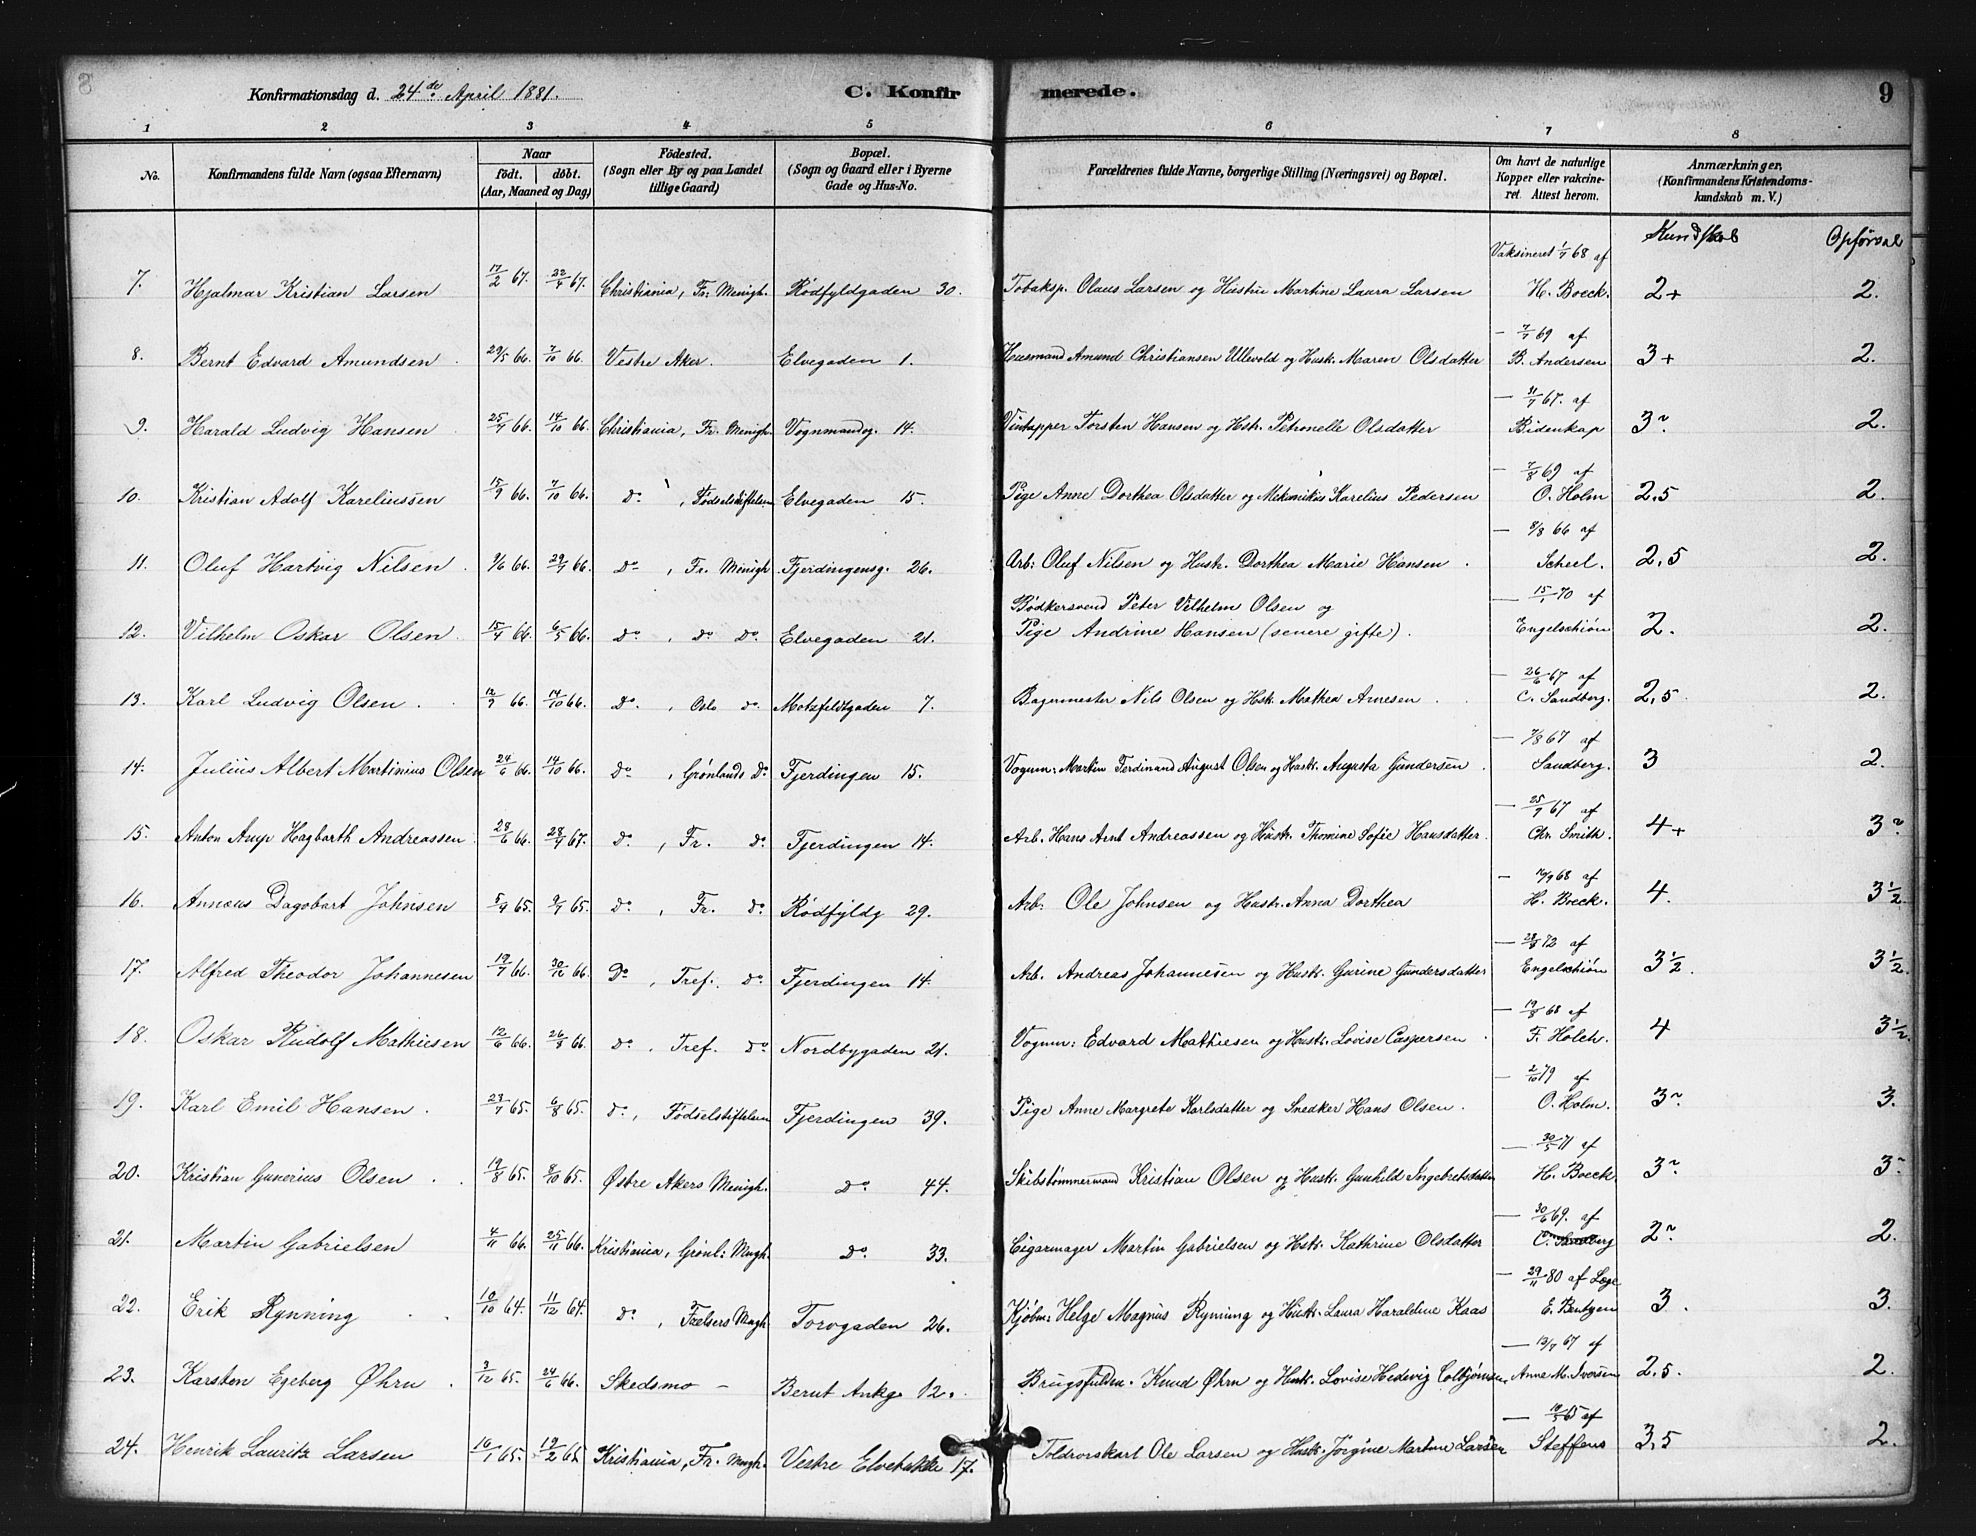 8
Konfirmationsdag d. 24de April 1881.
C. Konfirmerede.
9
1 2 3 4 5 6 7 8
No.
Konfirmandens fulde Navn (ogsaa Efternavn)
Naar
født. døbt.
(Aar, Maaned og Dag)
Fødested.
(Sogn eller By og paa Landet
tillige Gaard)
Bopæl.
(Sogn og Gaard eller i Byerne
Gade og Hus-No.
Forældrenes fulde Navne, borgerlige Stilling (Næringsvei) og Bopæl.
Om havt de naturlige
Kopper eller vakcine-
ret. Attest herom.
Anmærkninger,
(Konfirmandens Kristendoms-
kundskab m. V.)
Kundskab Opførsel
Vaksineret 1/7 68 af
7. Hjalmar Kristian Larsen 17/2 67. 22/4 67. Christiania, Fr. Menigh. Rødfyldgaden 30. Tobaksp. Olaus Larsen og Hustru Martine Laura Larsen H. Boeck. 2+ 2.
— 7/7 69 af
8. Bernt Edvard Amundsen 29/5 66. 7/10 66. Vestre Aker. Elvegaden 1. Huusmand Amund Christiansen Ullevold og Hustr. Maren Olsdatter B. Andersen 3+ 2.
— 31/7 67. af
9. Harald Ludvig Hansen 25/7 66. 14/10 66. Christiania, Fr. Menigh. Vognmandg. 14. Vintapper Torsten Hansen og Hstr. Petronelle Olsdatter Bidenkap 3~ 2.
— 7/8 69 af
10. Kristian Adolf Kareliussen 15/9 66. 7/10 66. Do, Fødselsstiftelsen Elvegaden 15. Pige Anne Dorthea Olsdatter og Mekanikus Karelius Pedersen O. Holm 2,5 2.
— 8/8 66 af
11. Oluf Hartvig Nilsen 9/6 66. 29/7 66. Do, Fr. Menigh Fjerdingensg. 26. Arb: Oluf Nilsen og Hustr. Dorthea Marie Hansen. Scheel. 2,5 2.
Bødkersvend Peter Vilhelm Olsen og — 15/1 70 af
12. Vilhelm Oskar Olsen 15/4 66. 6/5 66. Do, Do Do. Elvegaden 21. Pige Andrine Hansen (senere gifte). Engelschiøn 2. 2.
— 26/6 67 af
13. Karl Ludvig Olsen. 12/9 66. 14/10 66. Do, Oslo Do Motzfeldtgaden 7. Bagermester Nils Olsen og Hstr. Mathea Arnesen. C. Sandberg. 2,5. 2.
— 7/8 67 af
14. Julius Albert Martinius Olsen 24/6 66. 14/10 66. Do, Grønlands Do. Fjerdingen 15. Vogum: Martin Ferdinand August Olsen og Hustr. Augusta Gundersen. Sandberg. 3 2.
— 25/9 67 af
15. Anton Hagbarth Andreassen 28/6 66. 28/4 67. Do, Fr. Do Fjerdingen 14. Arb. Hans Arnt Andreassen og Hustr. Thomine Sofie Hansdatter. Chr. Smith. 4+ 3~
— 16/9 68 af
16. Annæus Dagobart Johnsen 5/4 65. 9/7 65. Do, Fr. Do. Rødfyldg 29. Arb. Ole Johnsen og Hustr. Anna Dorthea H. Boeck. 4. 3 1/2.
— 28/8 72 af
17. Alfred Theodor Johannesen 19/7 66. 30/12 66. Do, Tref. Do. Fjerdingen 14. Arb. Andreas Johannesen og Hustr. Gurine Gundersdatter Engelschiøn 3 1/2. 3 1/2.
— 19/8 68 af
18. Oskar Rudolf Mathiesen 12/6 66. 26/8 66. Do, Tref. Do Nordbygaden 21. Vogum: Edvard Mathiesen og Hustr. Lovise Caspersen. F. Holch. 4 3 1/2.
— 2/10 79 af
19. Karl Emil Hansen. 23/7 65. 6/8 65. Do, Fødselsstiftelsen Fjerdingen 39. Pige Anne Margrete Karlsdatter og Snedker Hans Olsen. O. Holm. 3~ 3.
— 30/5 71 af
20. Kristian Gunerius Olsen 19/8 65. 8/10 65. Østre Akers Menigh. Do 44. Skibstømmermand Kristian Olsen og Hustr. Gunhild Ingebretsdatter H. Boeck. 3~ 3~
— 30/6 69. af
21. Martin Gabrielsen 4/11 66. 25/11 66. Kristiania, Grønl: Mngh. Do. 33. Cigarmager Martin Gabrielsen og Hstr. Kathrine Olsdatter C. Sandberg 2~ 2.
— 29/11 80 af Læge
22. Erik Rynning 10/10 64. 11/12 64. Do, Frelsers Mngh Torvgaden 26. Kjøbm: Helge Magnus Rynning og Hustr. Laura Haraldine Kaas E. Bentzen 3. 3.
— 13/7 67 af
23. Karsten Egeberg Øhrn. 3/12 65. 24/6 66. Skedsmo — Bernt Ankg. 12. Brugsfuldm. Knud Øhrn og Hustr. Lovise Hedevig Colbjørnsen. Anne M. Iversen 2,5. 2.
— 10/5 65 af
24. Henrik Lauritz Larsen 16/1 65. 19/2 65 Kristiania, Fr. Mngh. Vestre Elvebakke 17. Toldrorskarl Ole Larsen og Hustr. Jørgine Martine Larsen Steffens 3,5 2.